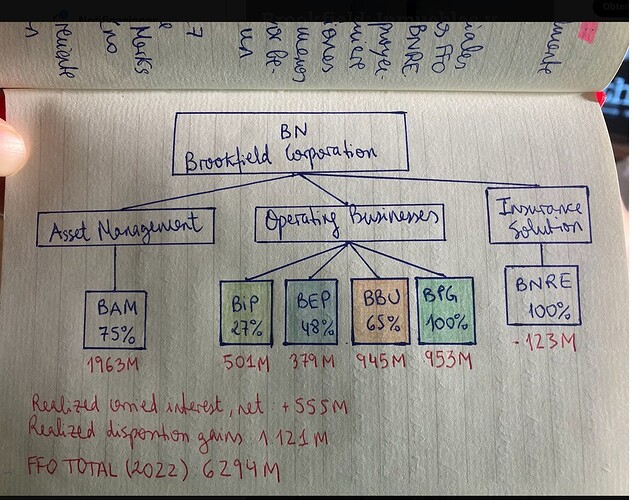 BN
Brookfield Corporation
Asset Management
Operating Businesses
Insurance
Solution
BAM
75%
BiP
27%
BEP
48%
BBU
65%
BPG
100%
BNRE
100%
1963M
501M
379M
945M
953M
-123M
Realized carried interest, net +555M
Realized disposition gains 1.121M
FFO TOTAL (2022) 6294M
FFO
BNRE
Marks
un